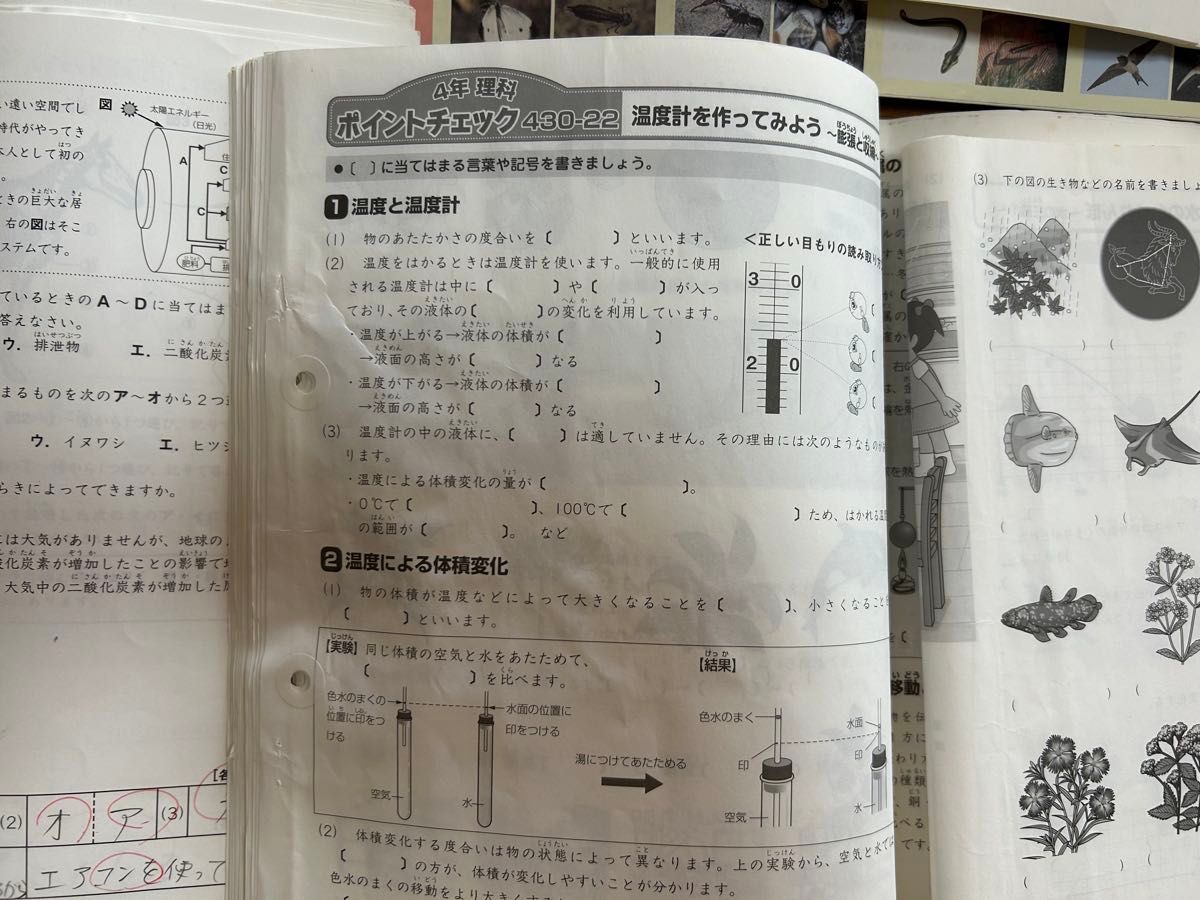 い遠い空間でし
時代がやってき
本人として初の
ときの巨大な居
右の図はそこ
ステムです。
図
太陽エネルギー
(日光)
A
C
C
肥料
ているときのA～Dに当てはま
答えなさい。
ウ. 排泄物
エ. 二酸化炭
まるものを次のア～オから2つ
ウ. イヌワシ
エ. ヒツジ
らきによってできますか。
には大気がありませんが、地球の
化炭素が増加したことの影響で
大気中の二酸化炭素が増加した
(2)
オ
ア
(3)
エアコンを使って
4年 理科
ポイントチェック 430-22
温度計を作ってみよう ～膨張と収縮～
●〔 〕に当てはまる言葉や記号を書きましょう。
1 温度と温度計
(1) 物のあたたかさの度合いを〔 〕といいます。
(2) 温度をはかるときは温度計を使います。一般的に使用
される温度計は中に〔 〕や〔 〕が入っ
ており、その液体の〔 〕の変化を利用しています。
・温度が上がる→液体の体積が〔 〕
→液面の高さが〔 〕なる
・温度が下がる→液体の体積が〔 〕
→液面の高さが〔 〕なる
<正しい目もりの読み取り方
3 0
2 0
(3) 温度計の中の液体に、〔 〕は適していません。その理由には次のようなものがあ
ります。
・温度による体積変化の量が〔 〕。
・0℃で〔 〕、100℃で〔 〕ため、はかれる温度
の範囲が〔 〕。 など
2 温度による体積変化
(1) 物の体積が温度などによって大きくなることを〔 〕、小さくなることを
〔 〕といいます。
【実験】同じ体積の空気と水をあたためて、
〔 〕を比べます。
色水のまくの
位置に印をつ
ける
水面の位置に
印をつける
空気
水
湯につけてあたためる
【結果】
色水のまく
印
空気
水面
印
水
(2) 体積変化する度合いは物の状態によって異なります。上の実験から、空気と水では
〔 〕の方が、体積が変化しやすいことが分かります。
色水のまくの移動をより大きくするに
(3) 下の図の生き物などの名前を書きましょ